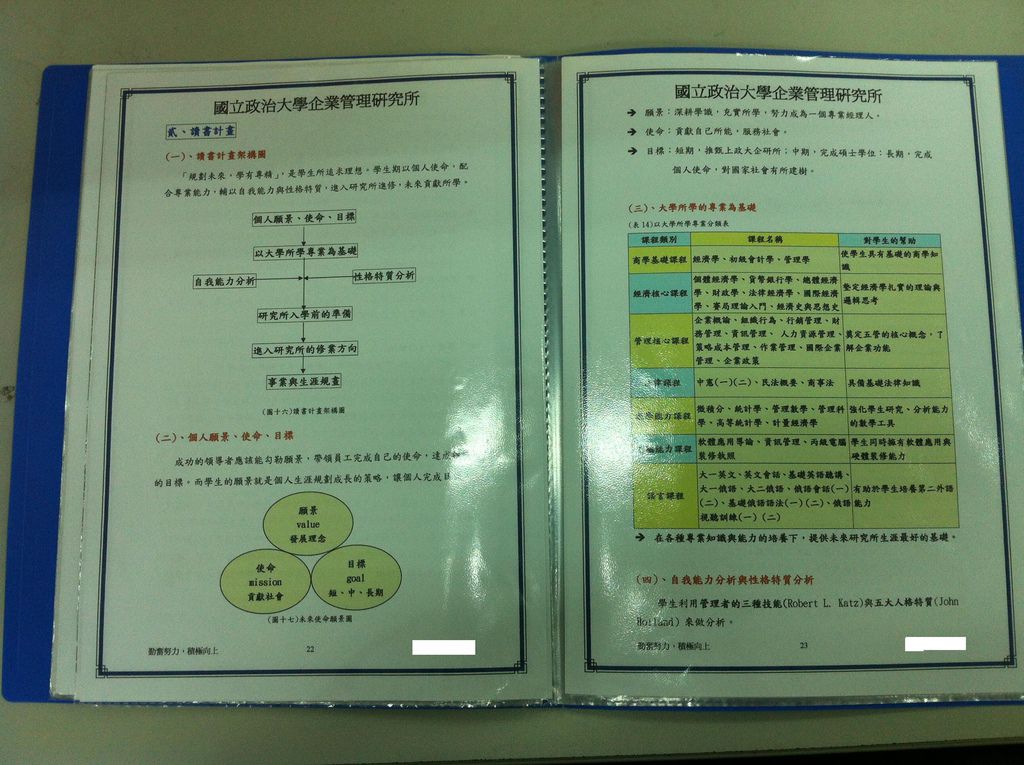 國立政治大學企業管理研究所
貳、讀書計畫
(一)、讀書計畫架構圖
「規劃未來,學有專精」,是學生所追求理想。學生期以個人使命,配
合專業能力,輔以自我能力與性格特質,進入研究所進修,未來貢獻所學。
個人願景、使命、目標
以大學所學專業為基礎
自我能力分析
性格特質分析
研究所入學前的準備
進入研究所的修業方向
事業與生涯規畫
(圖十六)讀書計畫架構圖
(二)、個人願景、使命、目標
成功的領導者應該能勾勒願景,帶領員工完成自己的使命,達成
的目標。而學生的願景就是個人生涯規劃成長的策略,讓個人完成
願景
value
發展理念
使命
mission
貢獻社會
目標
goal
短、中、長期
(圖十七)未來使命願景圖
勤奮努力,積極向上
22
國立政治大學企業管理研究所
➔ 願景:深耕學識,充實所學,努力成為一個專業經理人。
➔ 使命:貢獻自己所能,服務社會。
➔ 目標:短期,推甄上政大企研所;中期,完成碩士學位;長期,完成
個人使命,對國家社會有所建樹。
(三)、大學所學的專業為基礎
(表 14)以大學所學專業分類表
課程類別 課程名稱 對學生的幫助
商學基礎課程 經濟學、初級會計學、管理學 使學生具有基礎的商學知
識
個體經濟學、貨幣銀行學、總體經濟
經濟核心課程 學、財政學、法律經濟學、國際經濟 墊定經濟學扎實的理論與
學、賽局理論入門、經濟史與思想史 邏輯思考
企業概論、組織行為、行銷管理、財
管理核心課程 務管理、資訊管理、人力資源管理、 奠定五管的核心概念,了
策略成本管理、作業管理、國際企業 解企業功能
管理、企業政策
律課程 中憲(一)(二)、民法概要、商事法 具備基礎法律知識
學能力課程 微積分、統計學、管理數學、管理科 強化學生研究、分析能力
學、高等統計學、計量經濟學 的數學工具
能力課程 軟體應用導論、資訊管理、丙級電腦 學生同時擁有軟體應用與
裝修執照 硬體裝修能力
大一英文、英文會話、基礎英語聽講、
語言課程 大一俄語、大二俄語、俄語會話(一) 有助於學生培養第二外語
(二)、基礎俄語語法(一)(二)、俄語 能力
視聽訓練(一)(二)
➔ 在各種專業知識與能力的培養下,提供未來研究所生涯最好的基礎。
(四)、自我能力分析與性格特質分析
學生利用管理者的三種技能(Robert L. Katz)與五大人格特質(John
Holland) 來做分析。
勤奮努力,積極向上
23